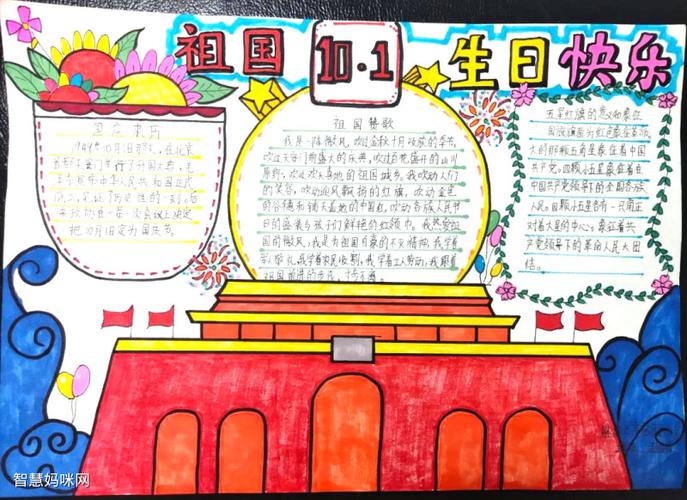 祖国 10·1 生日快乐
国庆来历
1949年10月1日那天，在北京
首都天安门举行了开国大典，毛
主席宣布中华人民共和国正式
成立，见证了历史性的一刻，后
来政协第一届一次会议上决定
把10月1日定为国庆节。
祖国赞歌
我是一阵微风，吹过金秋十月收获的季节，
吹过天安门前盛大的庆典，吹过百花盛开的山川
原野，吹过欢乐喜地的祖国城乡。我吹动人们
的笑容，吹动迎风飘扬的红旗，吹动金色
的谷穗和铺天盖地的中国红，吹动各族人民节
日的盛装与孩子们鲜艳的红领巾。我热爱祖
国的微风，我是为祖国
敬礼，我学着农民收割，我学着工人劳动，我跟着
祖国前进的步伐，
五星红旗的意义和象征
国旗旗面为红色象征革命，大
大的那颗五角星象征着中
国共产党。四颗小五星象征着在
中国共产党领导下的全国各族
人民。四颗小五星各有一只角正
对着大星的中心，象征着共
产党领导下的革命人民大团
结。
智慧妈咪网